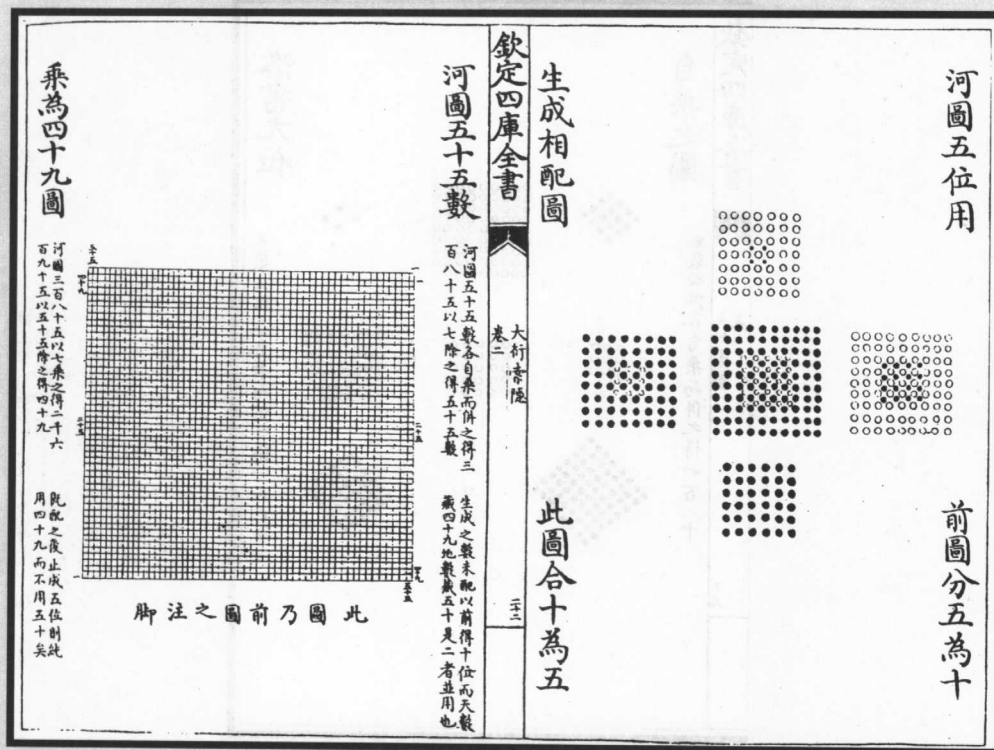 河圖五位用
前圖分五為十
生成相配圖
此圖合十為五
欽定四庫全書
大衍索隱
卷二
二十二
河圖五十五數
河圖五十五數各自乘而併之得三
百八十五以七除之得五十五數
生成之數未配以前得十位而天數
藏四十九地數藏五十是二者並用也
一
二十五
四十九
五十五
五十五
四十九
二十五
一
此圖乃前圖之注脚
乘為四十九圖
河圖三百八十五以七乘之得二千六
百九十五以五十五除之得四十九
既配之後止成五位則純
用四十九而不用五十矣